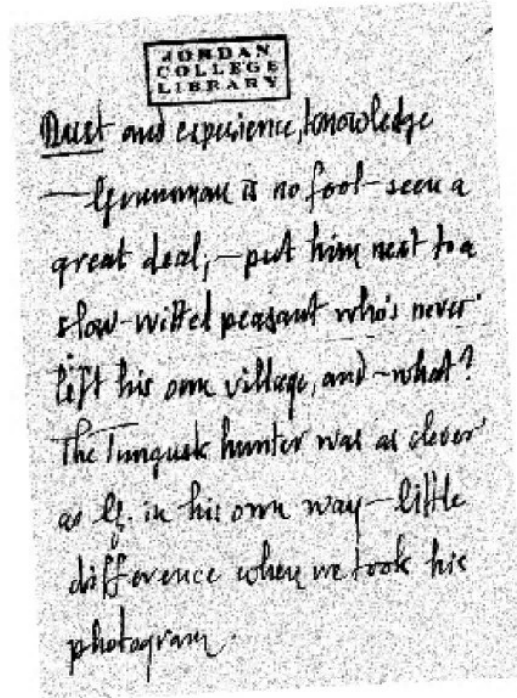 JORDAN
COLLEGE
LIBRARY
Dust and experience, knowledge
— Grumman is no fool - seen a
great deal; — put him next to a
slow-witted peasant who's never
left his own village, and - what?
The Tungusk hunter was as clever
as G. in his own way - little
difference when we took his
photogram.